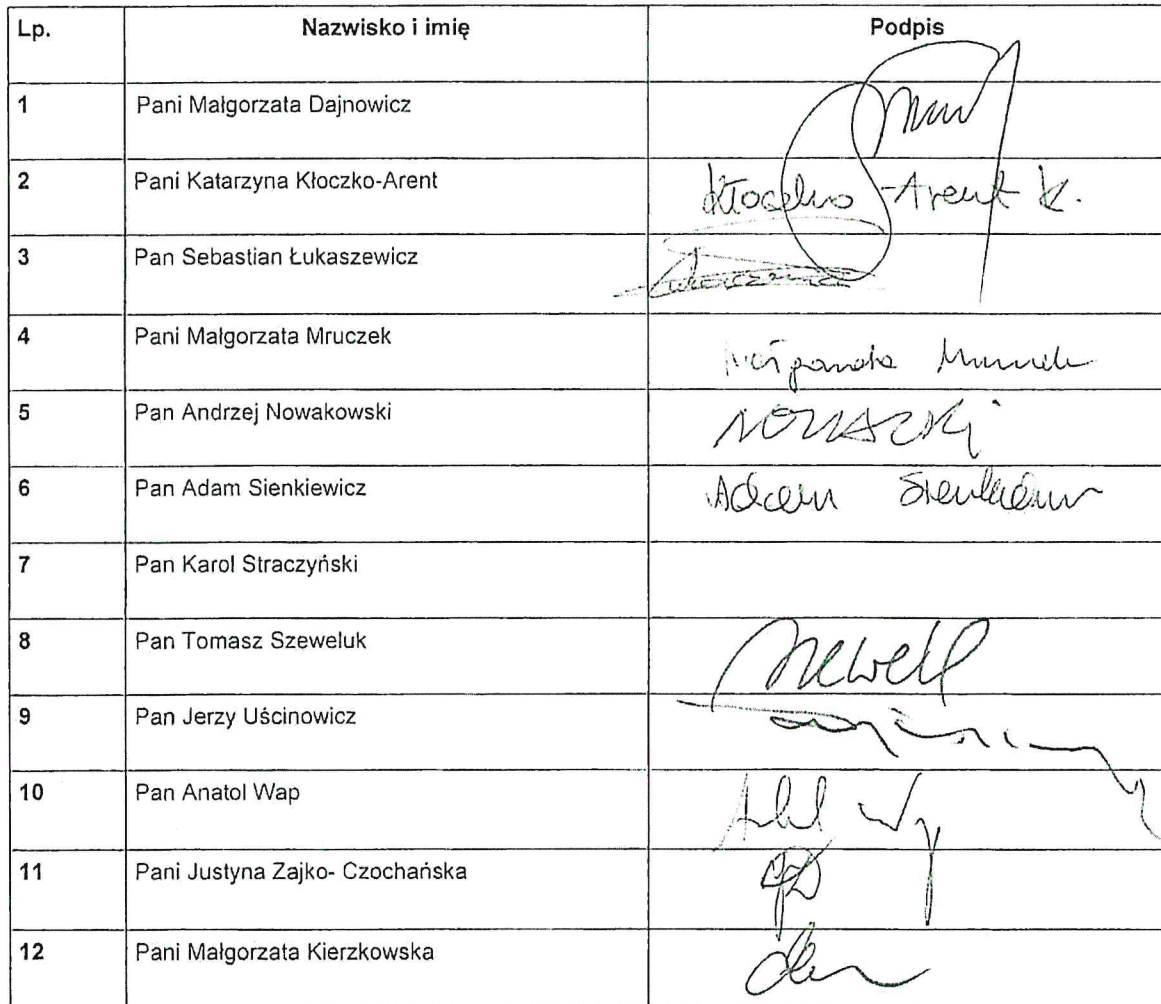 Lp. Nazwisko i imię Podpis
1 Pani Małgorzata Dajnowicz
2 Pani Katarzyna Kłoczko-Arent Kłoczko-Arent K.
3 Pan Sebastian Łukaszewicz
4 Pani Małgorzata Mruczek Małgorzata Mruczek
5 Pan Andrzej Nowakowski
6 Pan Adam Sienkiewicz Adam Sienkiewicz
7 Pan Karol Straczyński
8 Pan Tomasz Szeweluk
9 Pan Jerzy Uścinowicz
10 Pan Anatol Wap
11 Pani Justyna Zajko- Czochańska
12 Pani Małgorzata Kierzkowska